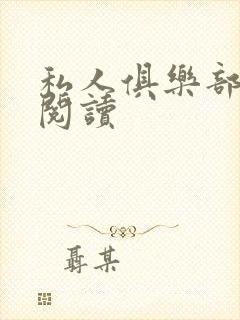 私人俱樂部
閱讀
聶某